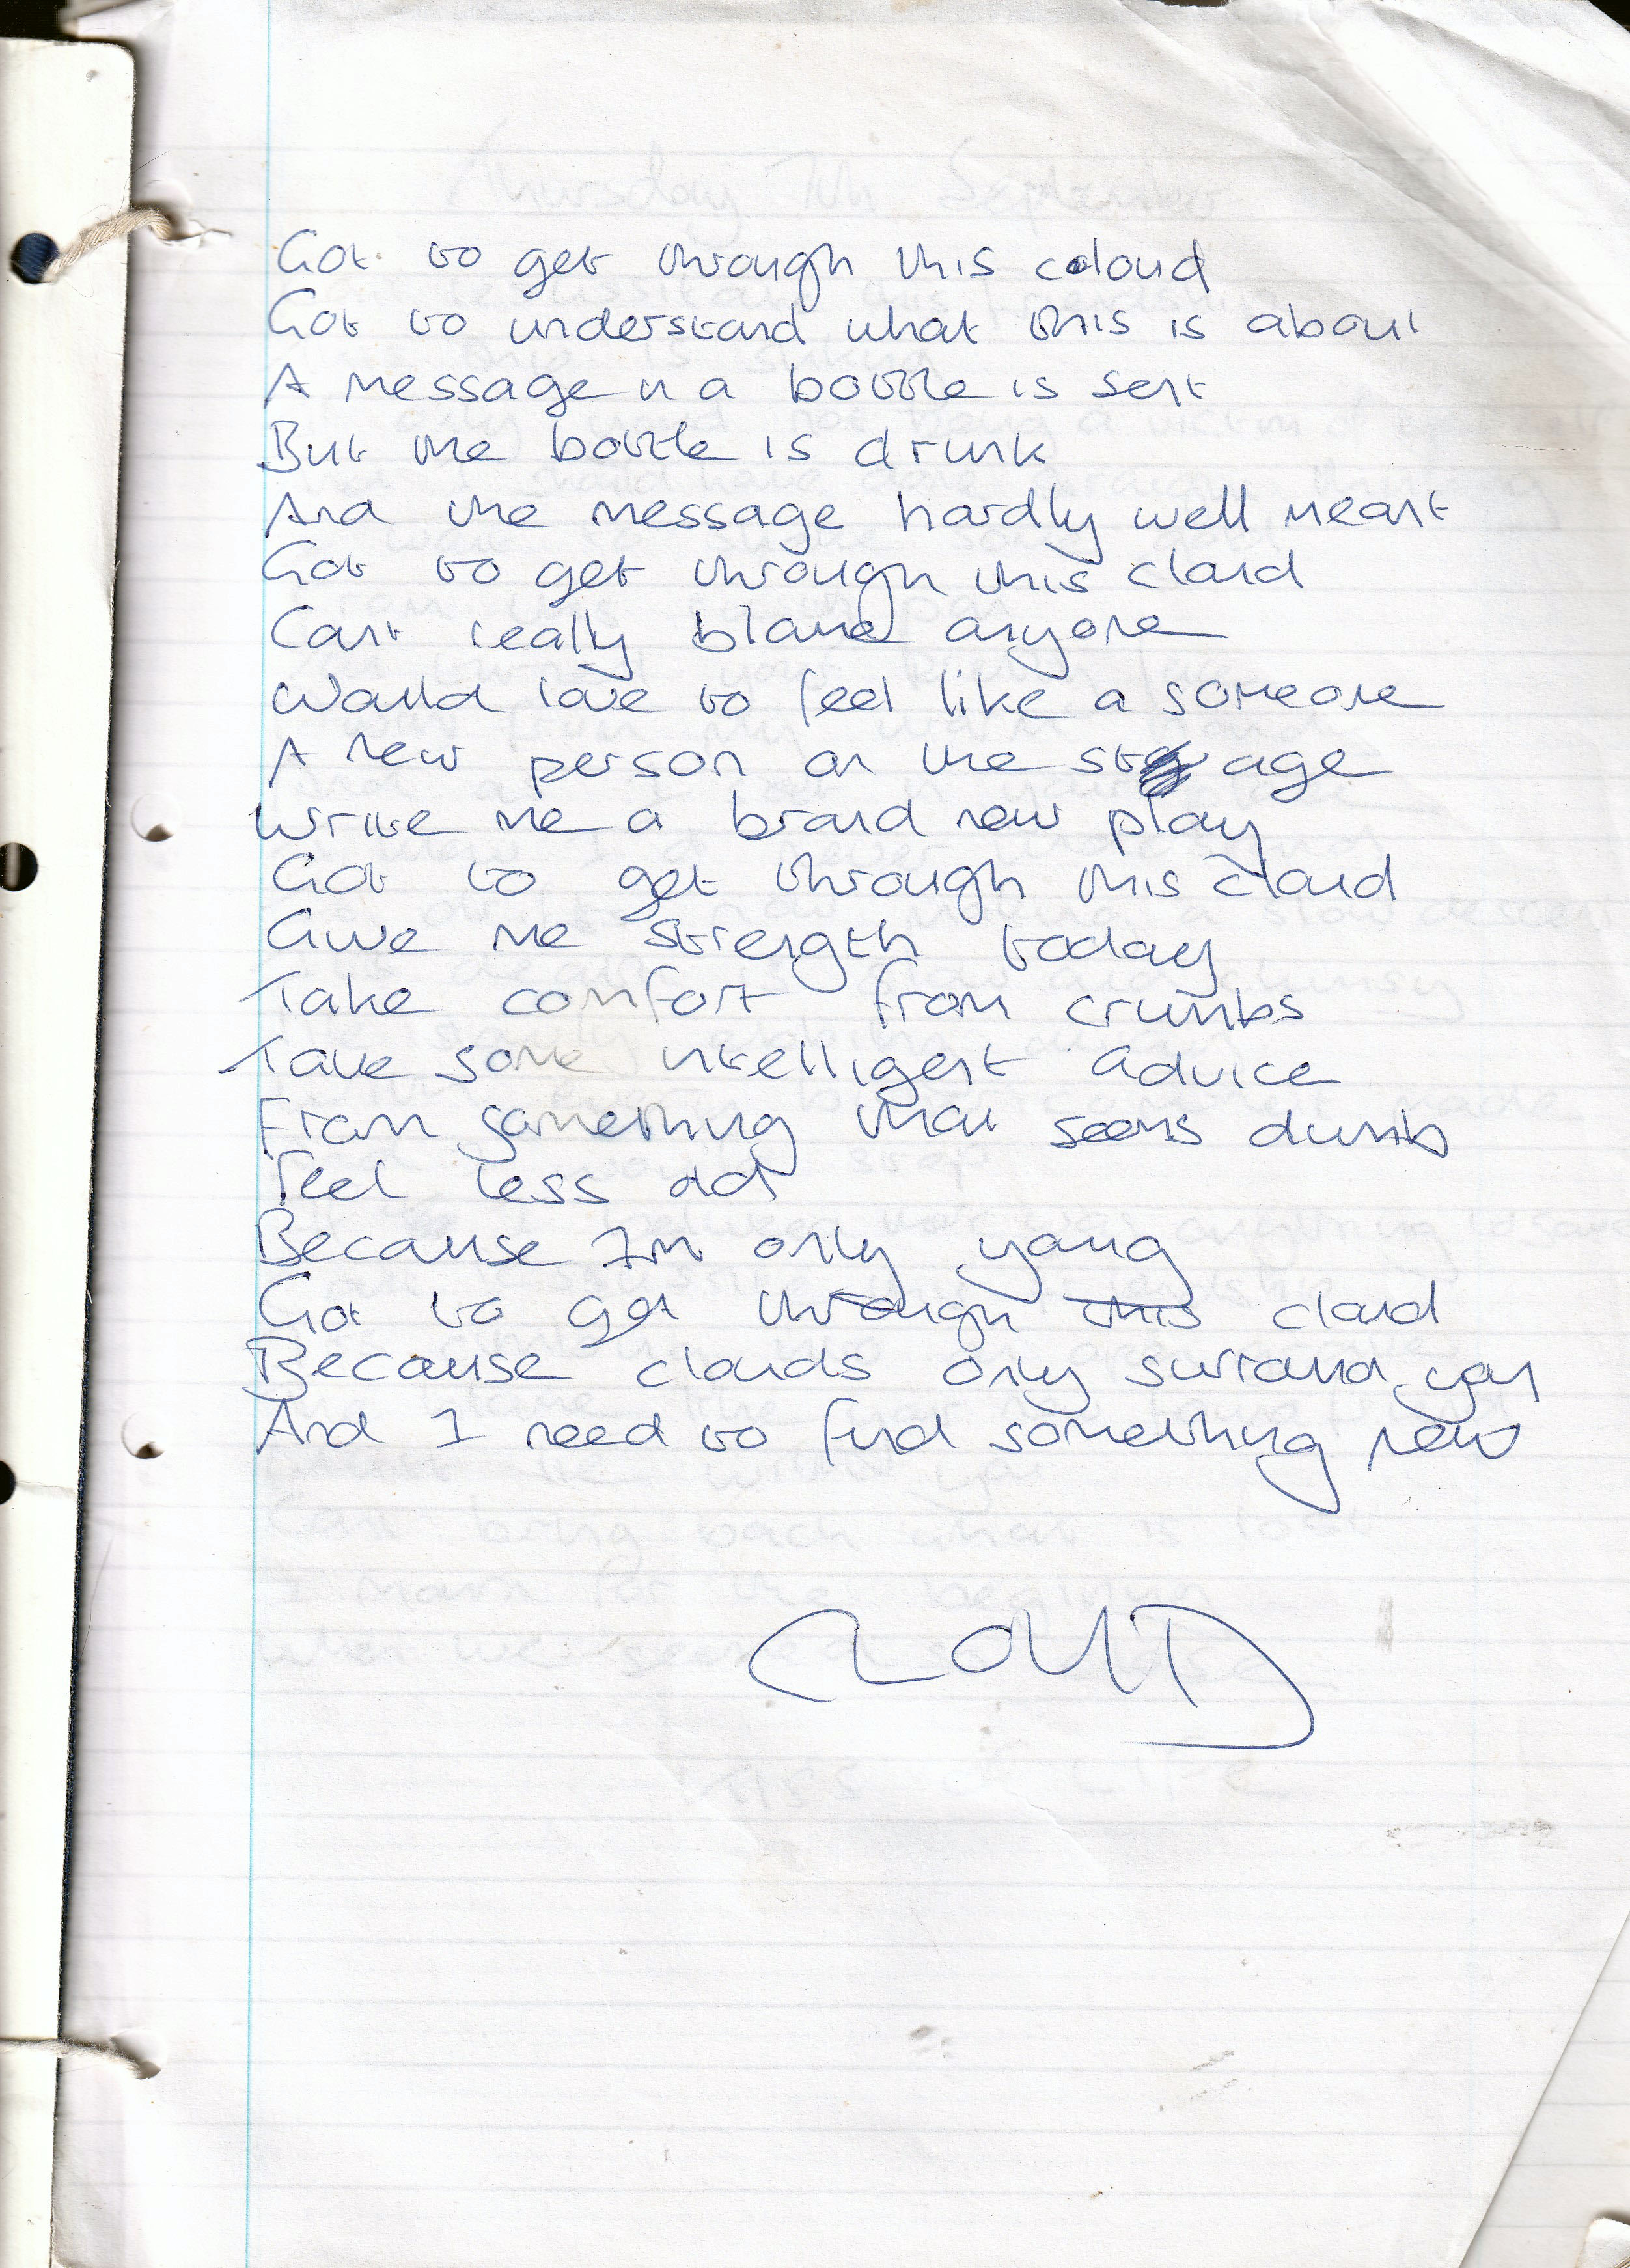 Got to get through this cloud
Got to understand what this is about
A message in a bottle is sent
But the bottle is drunk
And the message hardly well meant
Got to get through this cloud
Cant really blame anyone
Would love to feel like a someone
A new person on the stage
Write me a brand new play
Got to get through this cloud
Give me strength today
Take comfort from crumbs
Take some intelligent advice
From something that seems dumb
Feel less old
Because Im only young
Got to get through this cloud
Because clouds only surround you
And I need to find something new
CLOUD